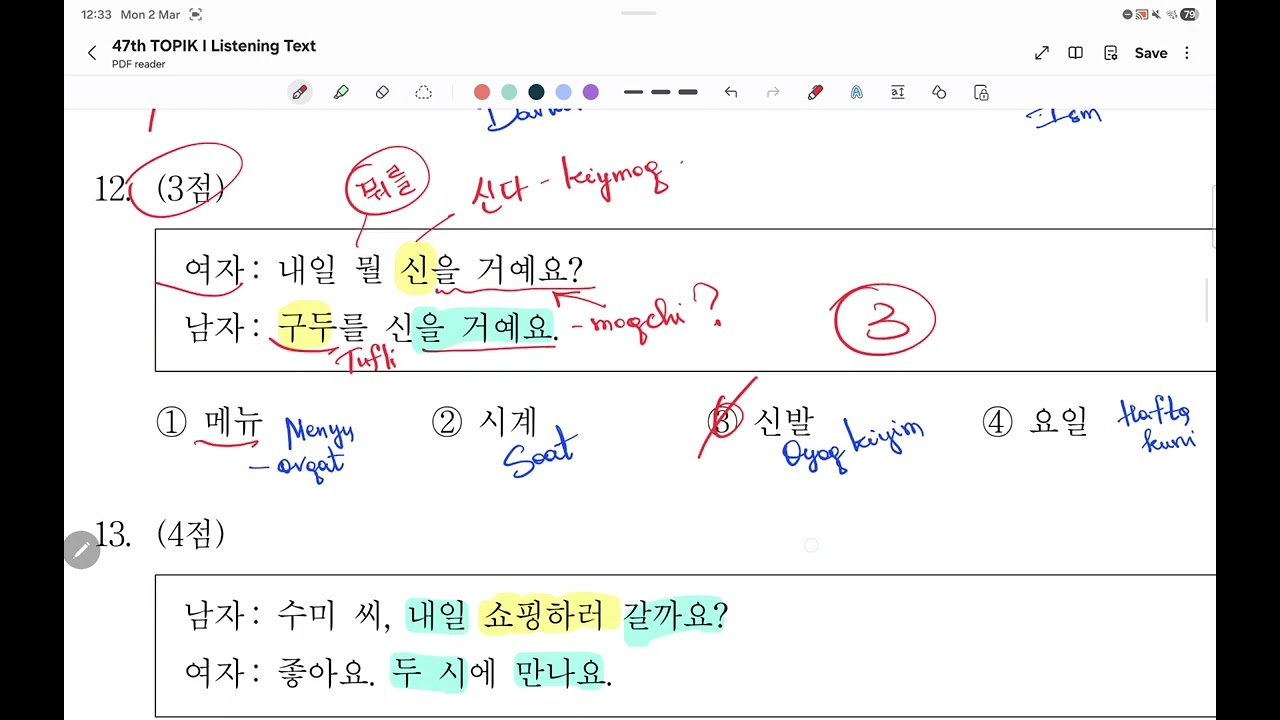 12:33 Mon 2 Mar
79
47th TOPIK I Listening Text
PDF reader
Save
Ism
12. (3점)
뭐를
신다 - kiymoq
여자: 내일 뭘 신을 거예요?
남자: 구두를 신을 거예요. - moqchi ?
Tufli
3
① 메뉴 ② 시계 ③ 신발 ④ 요일
Menyu
- ovqat
Soat
Oyoq kiyim
Hafta
kuni
13. (4점)
남자: 수미 씨, 내일 쇼핑하러 갈까요?
여자: 좋아요. 두 시에 만나요.